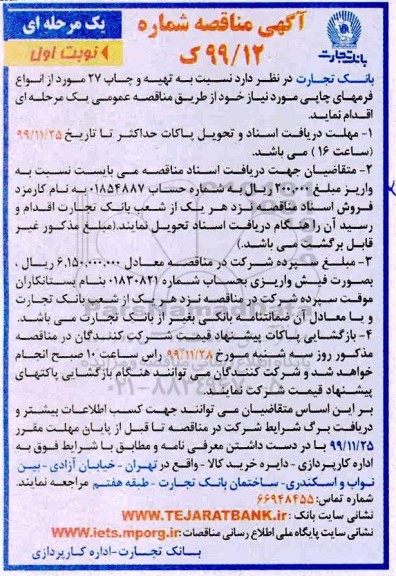 آگهی مناقصه شماره
۹۹/۱۲ ک
یک مرحله ای
نوبت اول
بانک تجارت
بانک تجارت در نظر دارد نسبت به تهیه و چاپ ۲۷ مورد از انواع
فرمهای چاپی مورد نیاز خود از طریق مناقصه عمومی یک مرحله ای
اقدام نماید.
۱- مهلت دریافت اسناد و تحویل پاکات حداکثر تا تاریخ ۹۹/۱۱/۲۵
(ساعت ۱۶ ) می باشد.
۲- متقاضیان جهت دریافت اسناد مناقصه می بایست نسبت به
واریز مبلغ ۲۰۰،۰۰۰ ریال به شماره حساب ۰۱۸۵۴۸۸۷ به نام کارمزد
فروش اسناد مناقصه نزد هر یک از شعب بانک تجارت اقدام و
رسید آن را هنگام دریافت اسناد تحویل نمایند.(مبلغ مذکور غیر
قابل برگشت می باشد.)
۳- مبلغ سپرده شرکت در مناقصه معادل ۶،۱۵۰،۰۰۰،۰۰۰ ریال ،
بصورت فیش واریزی بحساب شماره ۰۱۸۳۰۸۲۱ بنام بستانکاران
موقت سپرده شرکت در مناقصه نزد هر یک از شعب بانک تجارت
و یا معادل آن ضمانتنامه بانکی بغیر از بانک تجارت می باشد.
۴- بازگشایی پاکات پیشنهاد قیمت شرکت کنندگان در مناقصه
مذکور روز سه شنبه مورخ ۹۹/۱۱/۲۸ راس ساعت ۱۰ صبح انجام
خواهد شد و شرکت کنندگان می توانند هنگام بازگشایی پاکتهای
پیشنهاد قیمت شرکت نمایند.
بر این اساس متقاضیان می توانند جهت کسب اطلاعات بیشتر و
دریافت برگ شرایط شرکت در مناقصه تا قبل از پایان مهلت مقرر
۹۹/۱۱/۲۵ با در دست داشتن معرفی نامه و مطابق با شرایط فوق به
اداره کارپردازی - دایره خرید کالا - واقع در تهران - خیابان آزادی - بین
نواب و اسکندری- ساختمان بانک تجارت - طبقه هفتم مراجعه نمایند.
شماره تماس: ۶۶۹۴۸۴۵۵
نشانی سایت بانک : WWW.TEJARATBANK.ir
نشانی سایت پایگاه ملی اطلاع رسانی مناقصات: WWW.iets.mporg.ir
بانک تجارت-اداره کارپردازی